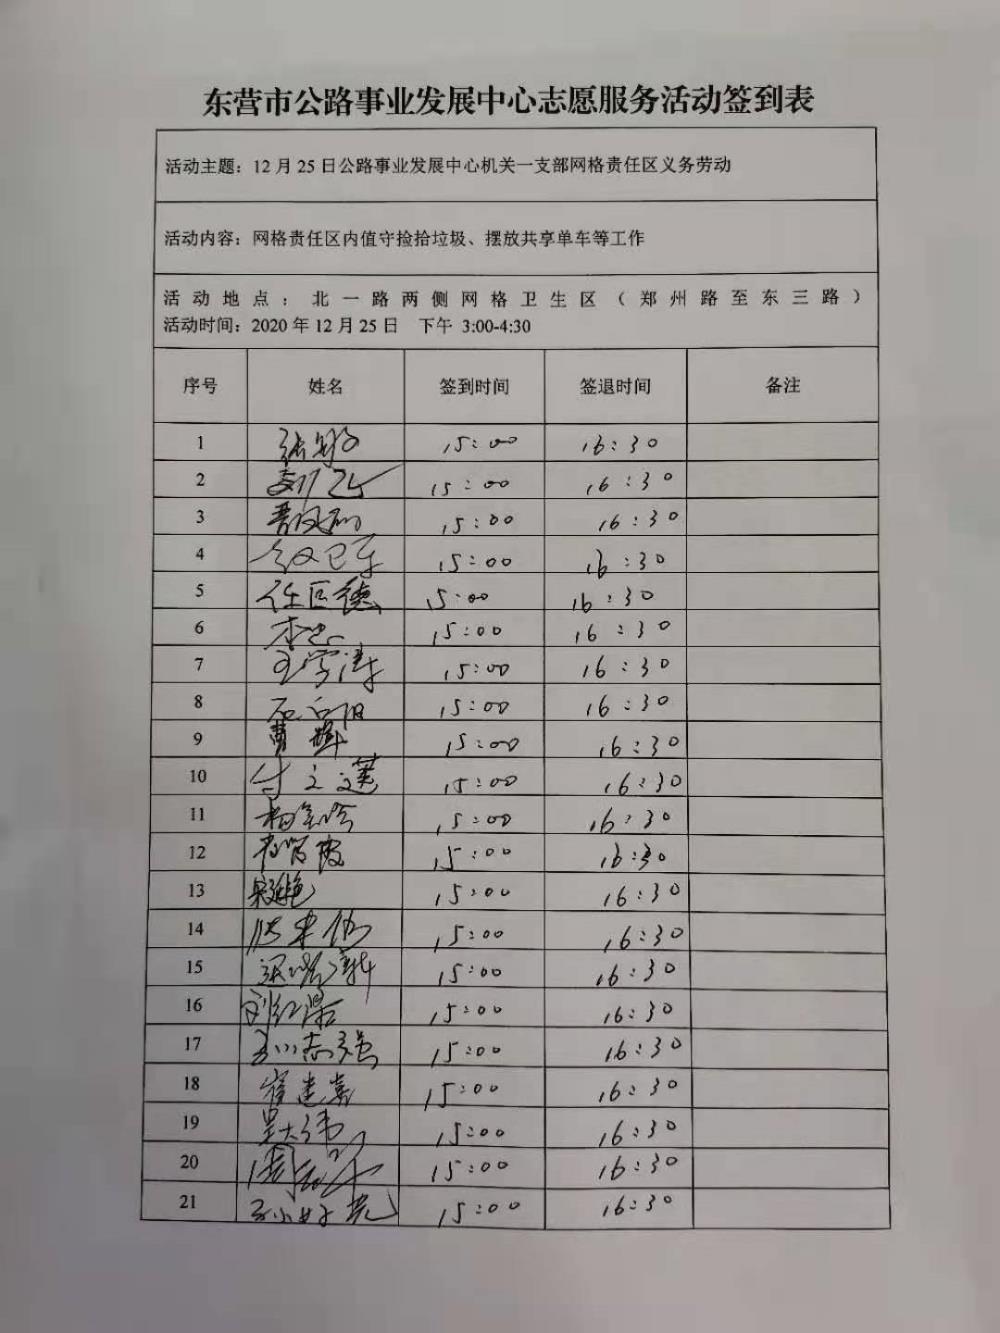 东营市公路事业发展中心志愿服务活动签到表
活动主题：12月25日公路事业发展中心机关一支部网格责任区义务劳动
活动内容：网格责任区内值守捡拾垃圾、摆放共享单车等工作
活动地点：北一路两侧网格卫生区（郑州路至东三路）
活动时间：2020年12月25日 下午 3:00-4:30
序号 姓名 签到时间 签退时间 备注
1 15:00 16:30
2 15:00 16:30
3 15:00 16:30
4 15:00 16:30
5 任匡德 15:00 16:30
6 15:00 16:30
7 王学涛 15:00 16:30
8 石向阳 15:00 16:30
9 曹辉 15:00 16:30
10 付文莲 15:00 16:30
11 15:00 16:30
12 15:00 16:30
13 宋延艳 15:00 16:30
14 15:00 16:30
15 15:00 16:30
16 刘红霞 15:00 16:30
17 15:00 16:30
18 崔建嘉 15:00 16:30
19 吴大伟 15:00 16:30
20 15:00 16:30
21 15:00 16:30